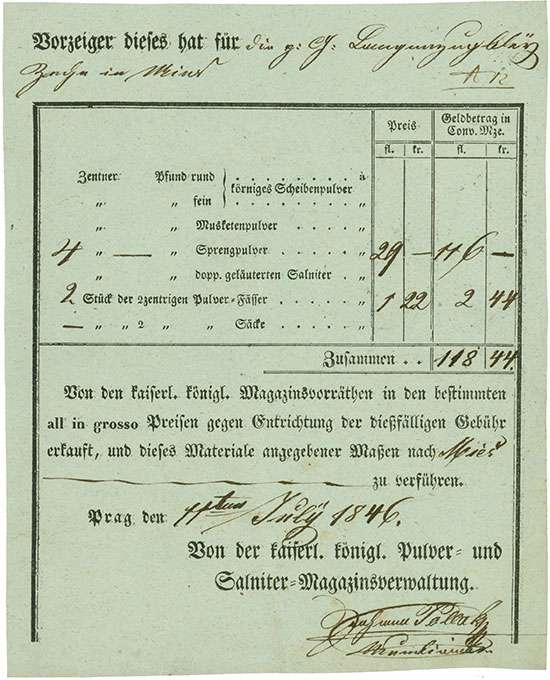 Vorzeiger dieses hat für die
Zeche in Mies
Preis
Geldbetrag in
Conv. Mze.
fl. kr. fl. kr.
Zentner Pfund rund } körniges Scheibenpulver . à
„ „ fein
„ „ Musketenpulver . . . . . „
4 — „ Sprengpulver . . . . . „ 29 — 116 —
„ „ dopp. geläuterten Salniter . „
2 Stück der 2zentrigen Pulver-Fässer . . . . „ 1 22 2 44
— „ „ 2 „ „ Säcke . . . . . „
Zusammen . . 118 44.
Von den kaiserl. königl. Magazinsvorräthen in den bestimmten
all in grosso Preisen gegen Entrichtung der dießfälligen Gebühr
erkauft, und dieses Materiale angegebener Maßen nach Mies
zu verführen.
Prag den 11ten July 1846.
Von der kaiserl. königl. Pulver- und
Salniter-Magazinsverwaltung.